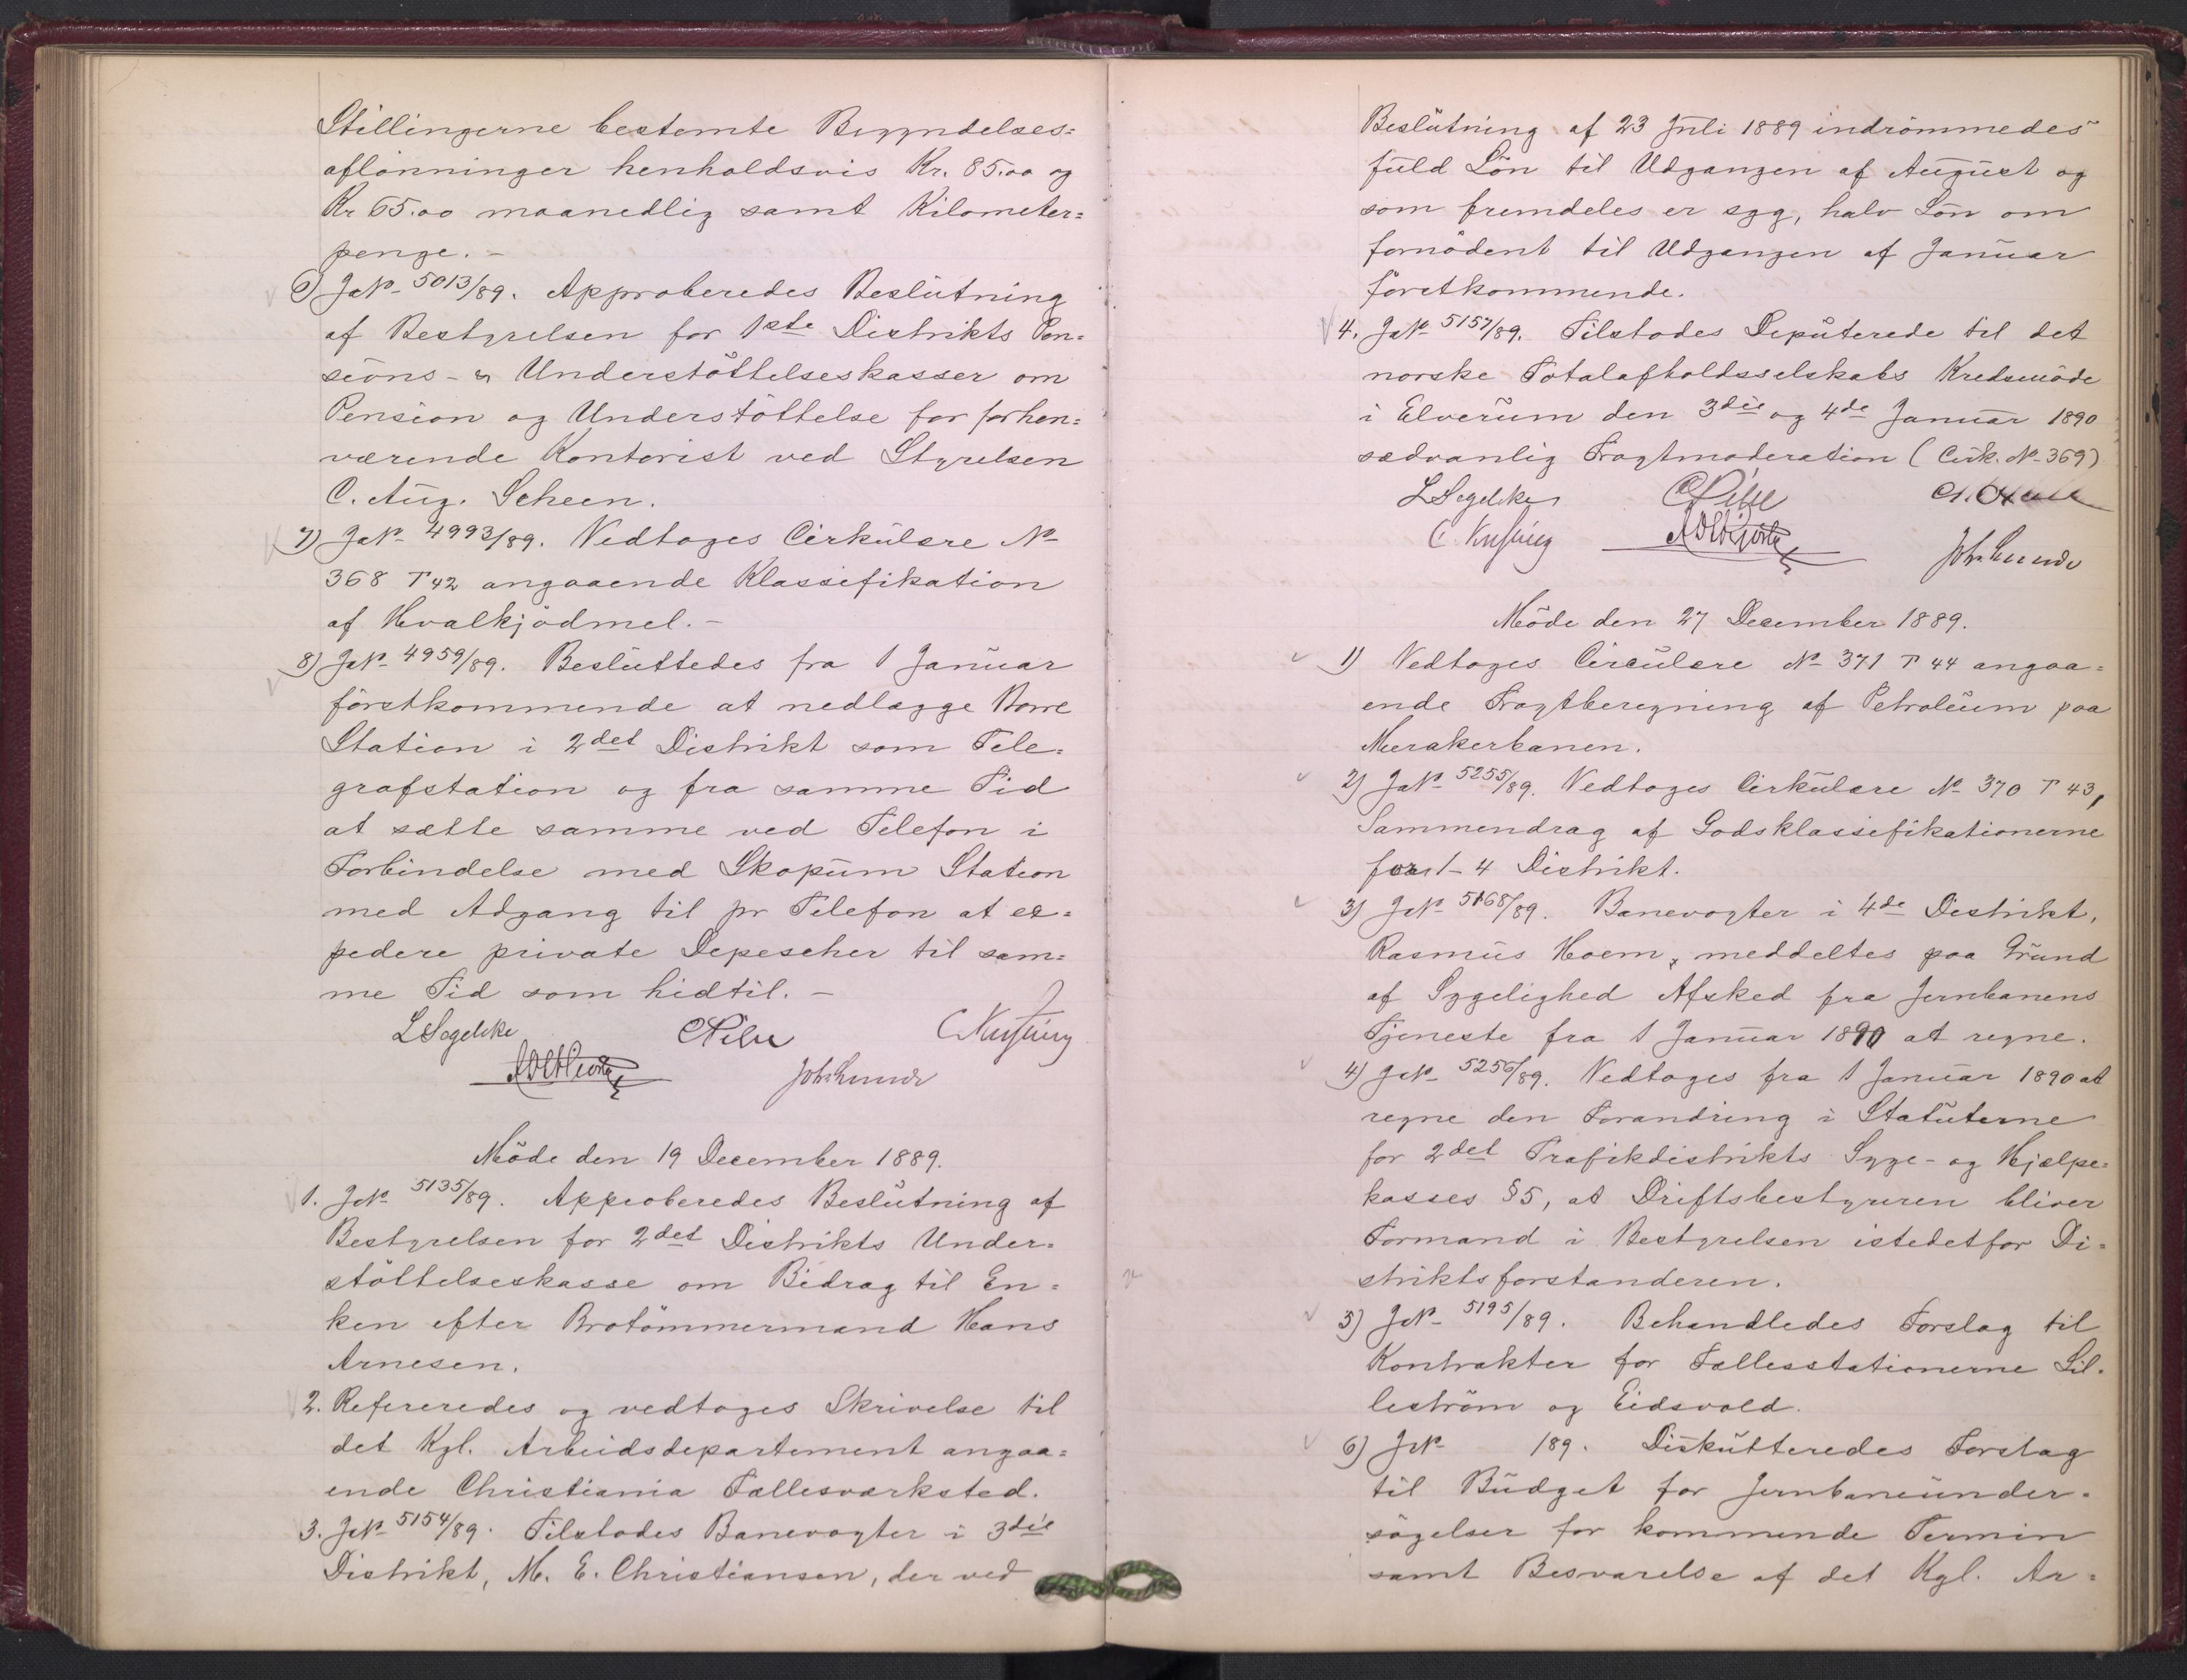 Stillingerne bestemte Begyndelses=
aflønninger henholdsvis Kr. 85.00 og
Kr 65.00 maanedlig samt Kilometer=
penge. -
6) JNo 5013/89. Approberedes Beslutning
af Bestyrelsen for 1ste Distrikts Pen=
sions- & Understöttelseskasser om
Pension og Understöttelse for forhen=
værende Kontorist ved Styrelsen
C. Aug. Scheen.
7) JNo 4993/89. Vedtoges Cirkulære No
368 T 42 angaaende Klassifikation
af Hvalkjödmel. -
8) JNo 4959/89. Besluttedes fra 1 Januar
förstkommende at nedlægge Borre
Station i 2det Distrikt som Tele=
grafstation og fra samme Tid
at sætte samme ved Telefon i
Forbindelse med Skopum Station
med Adgang til pr Telefon at ex=
pedere private Depescher til sam=
me Tid som hidtil. -
LSegelcke CPihl
Joh. Lunde
Möde den 19 December 1889.
1. JNo 5135/89. Approberedes Beslutning af
Bestyrelsen for 2det Distrikts Under=
stöttelseskasse om Bidrag til En=
ken efter Brotömmermand Hans
Arnesen.
2. Refereredes og vedtoges Skrivelse til
det Kgl. Arbeidsdepartement angaa=
ende Christiania Fællesværksted.
3. JNo 5154/89. Tilstodes Banevogter i 3die
Distrikt, M. E. Christiansen, der ved
Beslutning af 23 Juli 1889 indrömmedes
fuld Lön til Udgangen af August og
som fremdeles er syg, halv Lön om
fornödent til Udgangen af Januar
förstkommende.
4. JNo 5157/89. Tilstodes Deputerede til det
norske Totalafholdsselskabs Kredsmöde
i Elverum den 3die og 4de Januar 1890
sædvanlig Fragtmoderation (Cirk. No 369)
LSegelcke CPihl
Joh. Lunde
Möde den 27 December 1889.
1) Vedtoges Circulære No 371 T 44 angaa=
ende Fragtberegning af Petroleum paa
Merakerbanen.
2) JNo 5255/89. Vedtoges Cirkulære No 370 T 43,
Sammendrag af Godsklassifikationerne
for 1-4 Distrikt.
3) JNo 5168/89. Banevogter i 4de Distrikt,
Rasmus Hoem, meddeltes paa Grund
af Sygelighed Afsked fra Jernbanens
Tjeneste fra 1 Januar 1890 at regne.
4) JNo 5256/89. Vedtoges fra 1 Januar 1890 at
regne den Forandring i Statuterne
for 2det Trafikdistrikts Syge- og Hjælpe=
kasses § 5, at Driftsbestyreren bliver
Formand i Bestyrelsen istedetfor Di=
striktsforstanderen.
5) JNo 5195/89. Behandledes Forslag til
Kontrakter for Fællesstationerne Lil=
leström og Eidsvold.
6) JNo /89. Diskutteredes Forslag
til Budget for Jernbaneunder=
sögelser for kommende Termin
samt Besvarelse af det Kgl. Ar=